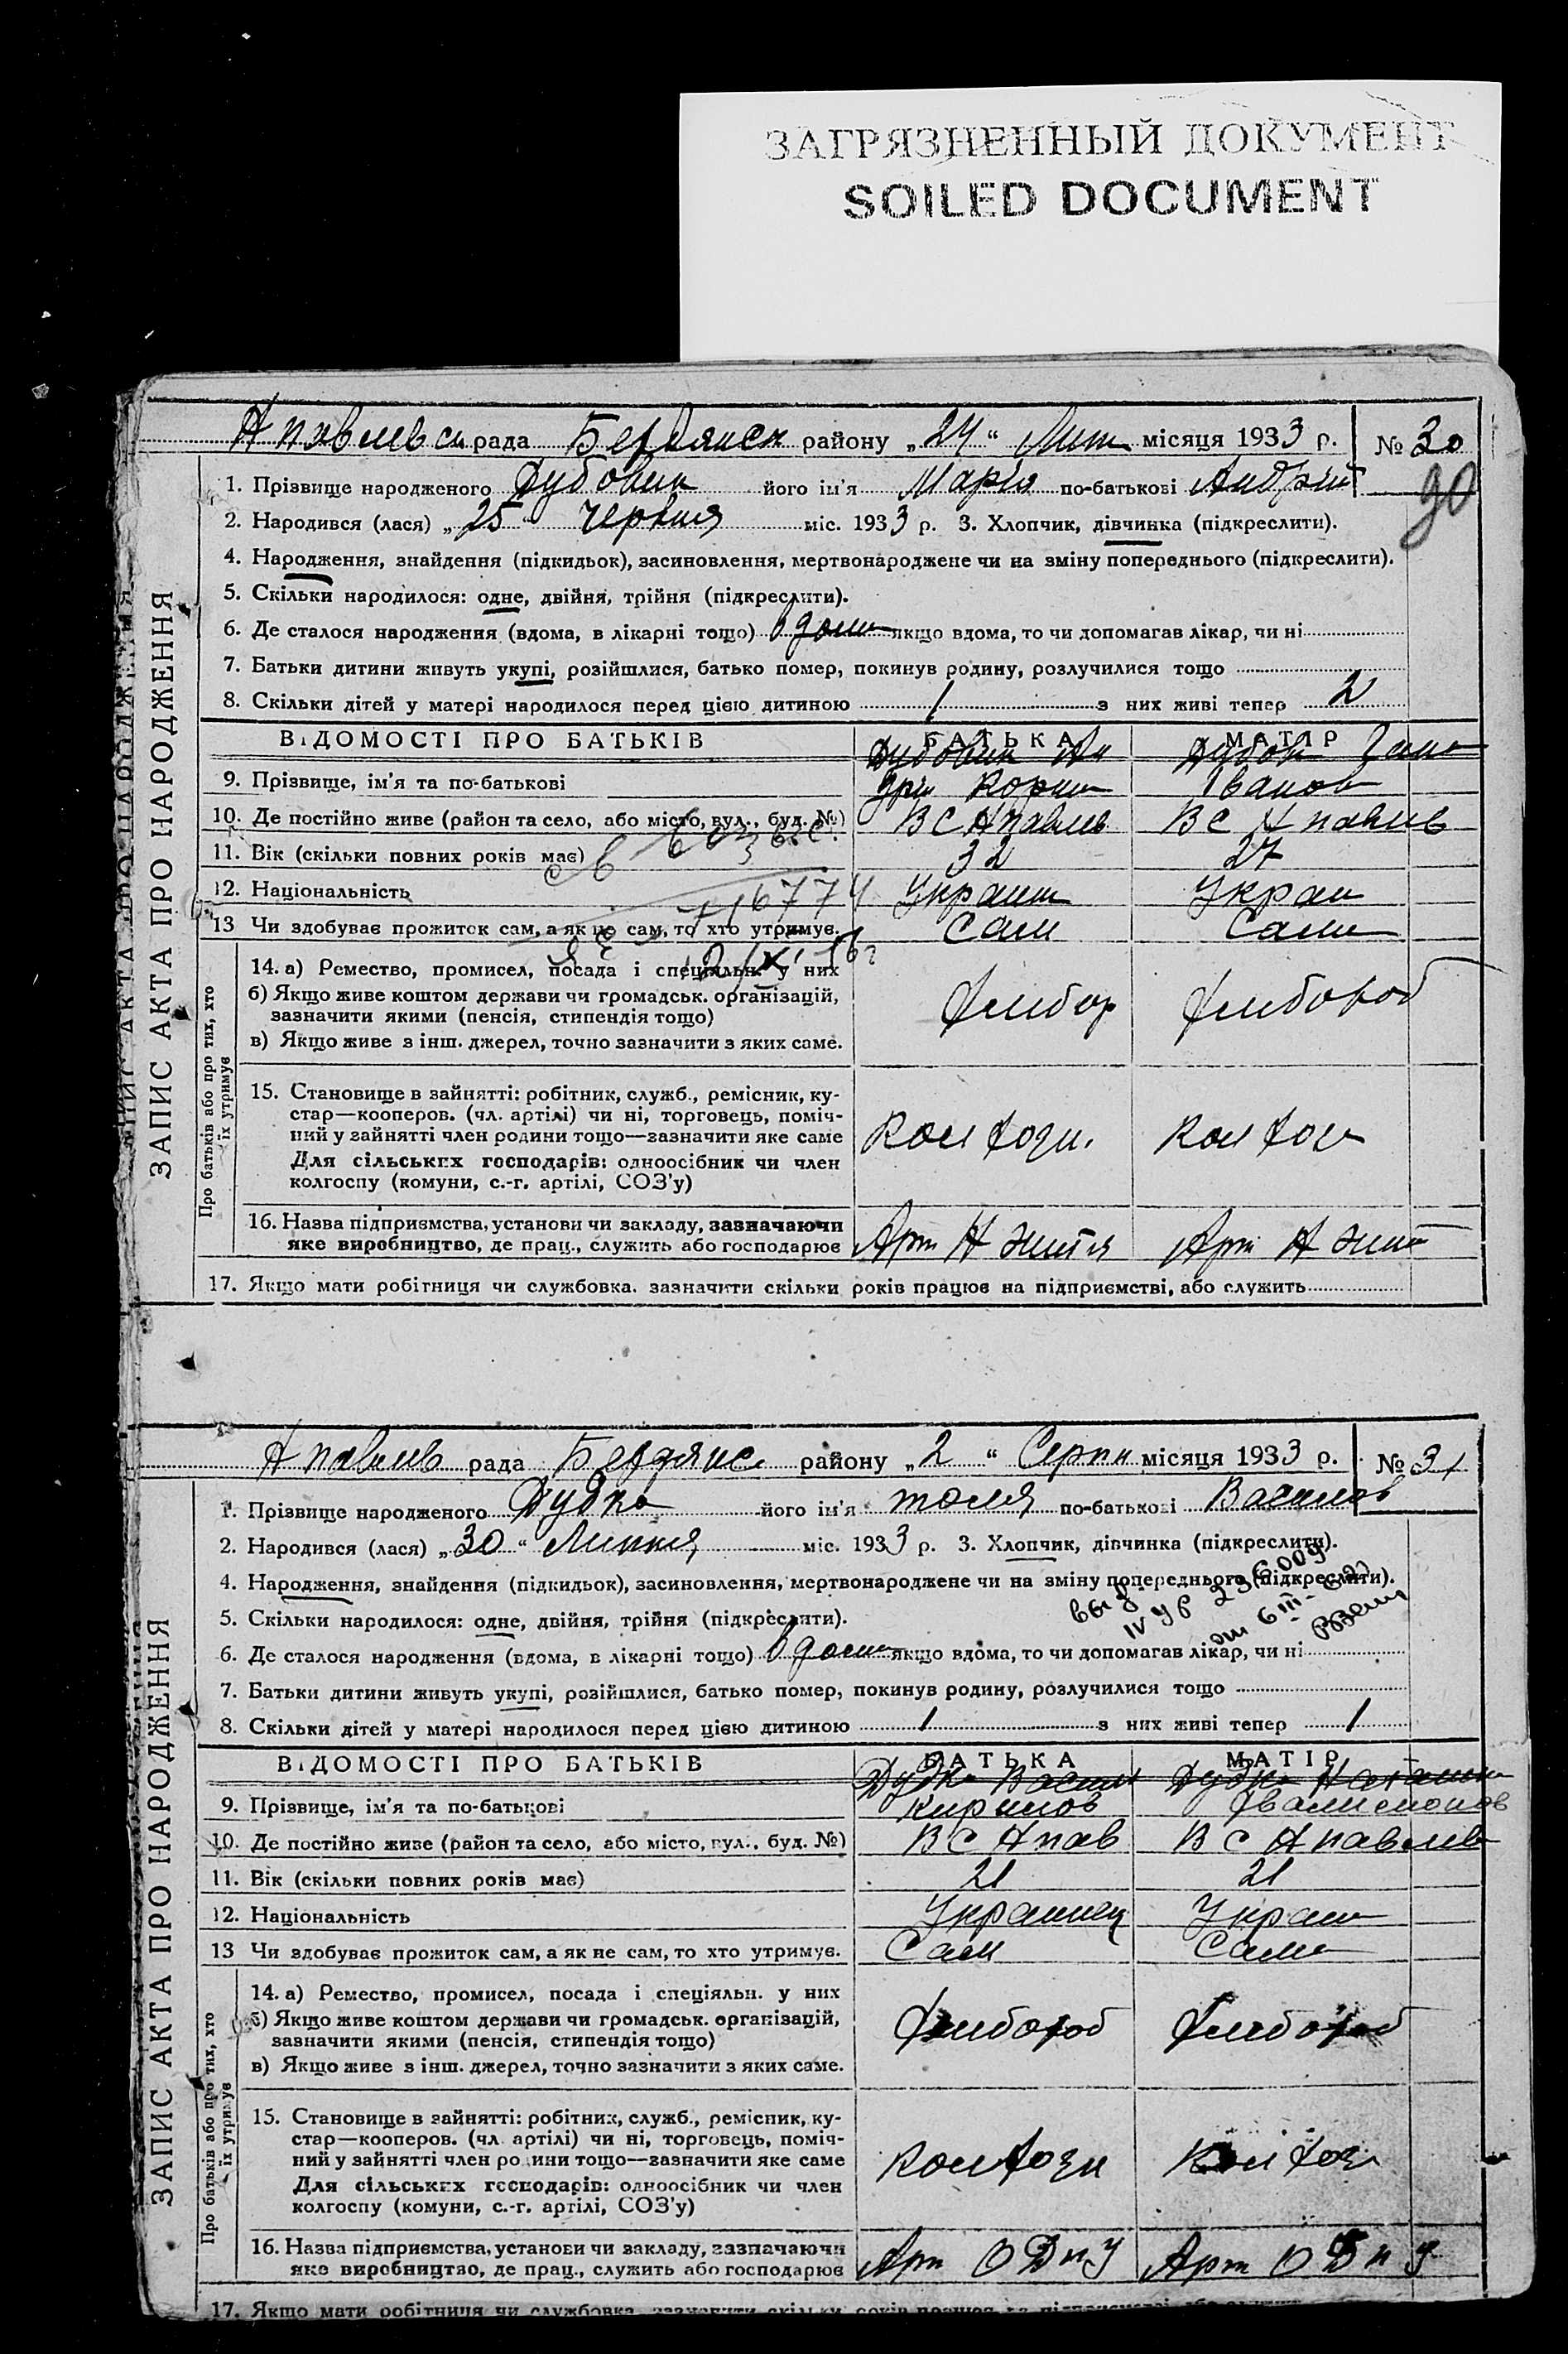 ЗАГРЯЗНЕННЫЙ ДОКУМЕНТ
SOILED DOCUMENT
рада Бердянск району „24“ Лип місяця 1933 р. № 30
90
1. Прізвище народженого Дубовик його ім'я Марія по-батькові Андрій
2. Народився (лася) „25 червня міс. 1933 р. 3. Хлопчик, дівчинка (підкреслити).
4. Народження, знайдення (підкидьок), засиновлення, мертвонароджене чи на зміну попереднього (підкреслити).
5. Скільки народилося: одне, двійня, трійня (підкреслити).
6. Де сталося народження (вдома, в лікарні тощо) вдома якщо вдома, то чи допомагав лікар, чи ні
7. Батьки дитини живуть укупі, розійшлися, батько помер, покинув родину, розлучилися тощо
8. Скільки дітей у матері народилося перед цією дитиною 1 з них живі тепер 2
ВІДОМОСТІ ПРО БАТЬКІВ БАТЬКА МАТІР
Дубовик Ан Дубов
9. Прізвище, ім'я та по-батькові Іванов
10. Де постійно живе (район та село, або місто, вул., буд. №) В С Н павлів В С Н павлів
11. Вік (скільки повних років має) 32 27
12. Національність Украин Украи
13 Чи здобуває прожиток сам, а як не сам, то хто утримує. Сам Сама
14. а) Ремество, промисел, посада і спеціяльн. у них
б) Якщо живе коштом держави чи громадськ. організацій,
зазначити якими (пенсія, стипендія тощо)
Хлибор Хлибороб
в) Якщо живе з інш. джерел, точно зазначити з яких саме.
15. Становище в зайнятті: робітник, служб., ремісник, ку-
стар—кооперов. (чл. артілі) чи ні, торговець, поміч-
ний у зайнятті член родини тощо—зазначити яке саме
Для сільських господарів: одноосібник чи член
колгоспу (комуни, с.-г. артілі, СОЗ'у)
16. Назва підприємства, установи чи закладу, зазначаючи
яке виробництво, де прац., служить або господарює Арт Н життя Арт Н жит
17. Якщо мати робітниця чи службовка, зазначити скільки років працює на підприємстві, або служить
ЗАПИС АКТА ПРО НАРОДЖЕННЯ
Про батьків або про тих, хто
їх утримує
Н павлів рада Бердянс району „2“ Серпн місяця 1933 р. № 31
1. Прізвище народженого Дудка його ім'я толя по-батькові Василов
2. Народився (лася) „30“ Липня міс. 1933 р. 3. Хлопчик, дівчинка (підкреслити).
4. Народження, знайдення (підкидьок), засиновлення, мертвонароджене чи на зміну попереднього (підкреслити).
5. Скільки народилося: одне, двійня, трійня (підкреслити).
6. Де сталося народження (вдома, в лікарні тощо) вдома якщо вдома, то чи допомагав лікар, чи ні
7. Батьки дитини живуть укупі, розійшлися, батько помер, покинув родину, розлучилися тощо
8. Скільки дітей у матері народилося перед цією дитиною 1 з них живі тепер 1
ВІДОМОСТІ ПРО БАТЬКІВ БАТЬКА МАТІР
Дудка Васил Дудка
9. Прізвище, ім'я та по-батькові Кирилов
10. Де постійно живе (район та село, або місто, вул., буд. №) В С Н пав В С Н павлів
11. Вік (скільки повних років має) 21 21
12. Національність Украинец Украи
13 Чи здобуває прожиток сам, а як не сам, то хто утримує. Сам Сама
14. а) Ремество, промисел, посада і спеціяльн. у них
б) Якщо живе коштом держави чи громадськ. організацій,
зазначити якими (пенсія, стипендія тощо)
Хлибороб Хлибороб
в) Якщо живе з інш. джерел, точно зазначити з яких саме.
15. Становище в зайнятті: робітник, служб., ремісник, ку-
стар—кооперов. (чл. артілі) чи ні, торговець, поміч-
ний у зайнятті член родини тощо—зазначити яке саме
Для сільських господарів: одноосібник чи член
колгоспу (комуни, с.-г. артілі, СОЗ'у)
16. Назва підприємства, установи чи закладу, зазначаючи
яке виробництво, де прац., служить або господарює Арт Арт
17. Якщо мати робітниця чи службовка
ЗАПИС АКТА ПРО НАРОДЖЕННЯ
Про батьків або про тих, хто
їх утримує